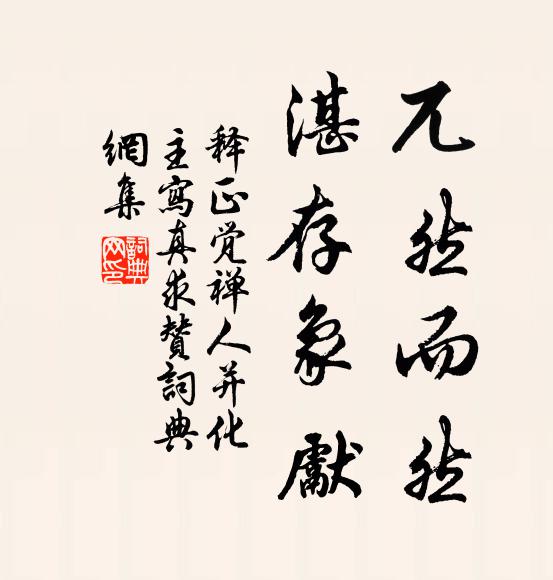 兀然而然
湛存象献
释正觉禅人并化
主寫真求賛詞典
網集
詞典网印